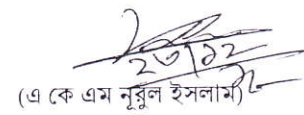 (এ কে এম নূরুল ইসলাম)